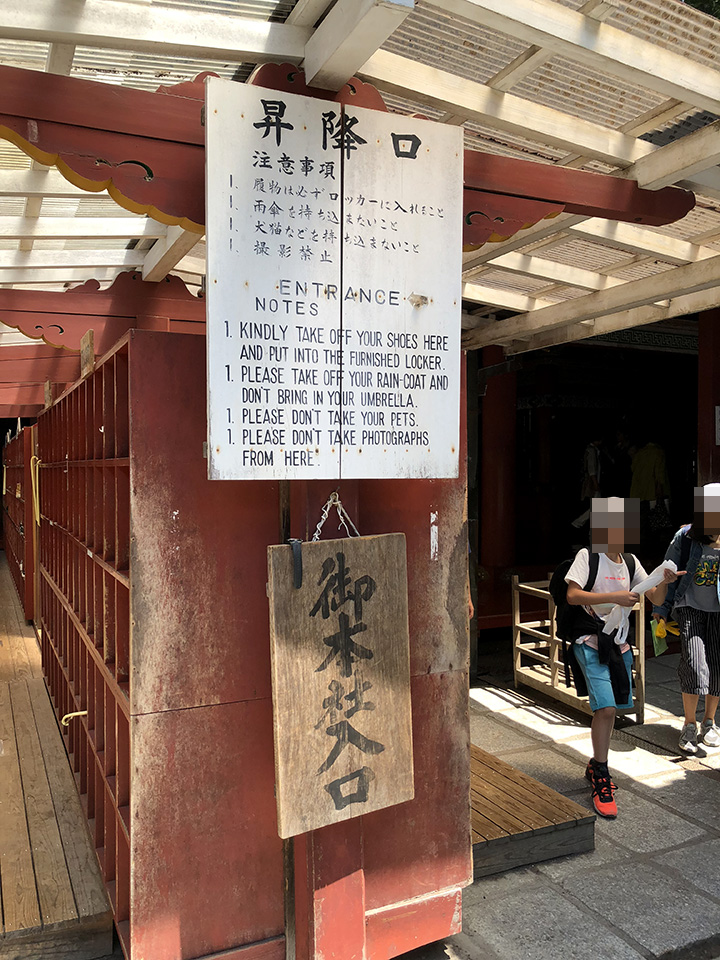 昇降口
注意事項
1. 履物は必ずロッカーに入れること
1. 雨傘を持ち込まないこと
1. 犬猫などを持ち込まないこと
1. 撮影禁止
ENTRANCE
NOTES
1. KINDLY TAKE OFF YOUR SHOES HERE
AND PUT INTO THE FURNISHED LOCKER.
1. PLEASE TAKE OFF YOUR RAIN-COAT AND
DON'T BRING IN YOUR UMBRELLA.
1. PLEASE DON'T TAKE YOUR PETS.
1. PLEASE DON'T TAKE PHOTOGRAPHS
FROM HERE.
御本社入口